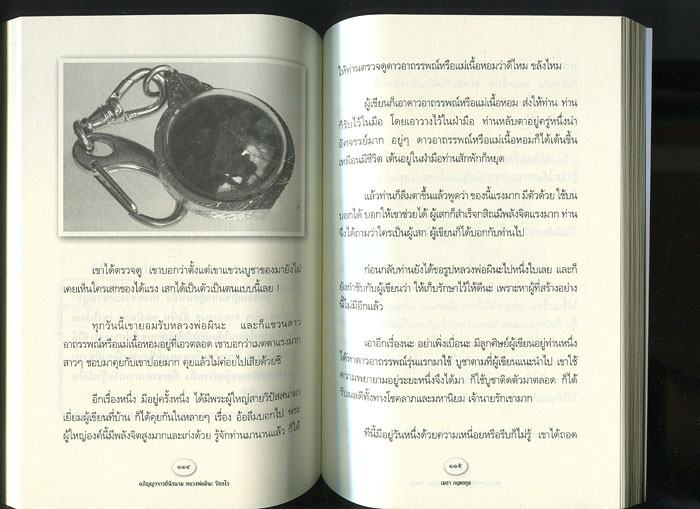 เขาได้ตรวจดู เขาบอกว่าตั้งแต่เขาแขวนบูชาของมายังไม่
เคยเห็นใครเสกของได้แรง เสกได้เป็นตัวเป็นตนแบบนี้เลย !
ทุกวันนี้เขายอมรับหลวงพ่อผินะ และก็แขวนดาว
อาถรรพณ์หรือแม่เนื้อหอมอยู่ที่เอวตลอด เขาบอกว่าเมตตาแรงมาก
สาวๆ ชอบมาคุยกับเขาบ่อยมาก คุยแล้วไม่ค่อยไปเสียด้วยซิ
อีกเรื่องหนึ่ง มีอยู่ครั้งหนึ่ง ได้มีพระผู้ใหญ่สายวิปัสสนามา
เยี่ยมผู้เขียนที่บ้าน ก็ได้คุยกันในหลายๆ เรื่อง อ้อลืมบอกไป พระ
ผู้ใหญ่องค์นี้มีพลังจิตสูงมากและเก่งด้วย รู้จักท่านมานานแล้ว ก็ได้
๑๑๔
อภิญญาจารย์นิรนาม หลวงพ่อผินะ ปิยธโร
ให้ท่านตรวจดูดาวอาถรรพณ์หรือแม่เนื้อหอมว่าดีไหม ขลังไหม
ผู้เขียนก็เอาดาวอาถรรพณ์หรือแม่เนื้อหอม ส่งให้ท่าน ท่าน
ก็รับไว้ในมือ โดยเอาวางไว้ในฝ่ามือ ท่านหลับตาอยู่ครู่หนึ่งน่า
อัศจรรย์มาก อยู่ๆ ดาวอาถรรพณ์หรือแม่เนื้อหอมก็ได้เต้นขึ้น
เหมือนมีชีวิต เต้นอยู่ในฝ่ามือท่านสักพักก็หยุด
แล้วท่านก็ลืมตาขึ้นแล้วพูดว่า ของนี้แรงมาก มีตัวด้วย ใช้บน
บอกได้ บอกให้เขาช่วยได้ ผู้เสกก็สำเร็จกสิณมีพลังจิตแรงมาก ท่าน
จึงได้ถามว่าใครเป็นผู้เสก ผู้เขียนก็ได้บอกกับท่านไป
ก่อนกลับท่านยังได้ขอรูปหลวงพ่อผินะไปหนึ่งใบเลย และก็
ยังกำชับกับผู้เขียนว่า ให้เก็บรักษาไว้ให้ดีนะ เพราะหาผู้ที่สร้างอย่าง
นี้ไม่มีอีกแล้ว
เอาอีกเรื่องนะ อย่าเพิ่งเบื่อนะ มีลูกศิษย์ผู้เขียนอยู่ท่านหนึ่ง
ได้หาดาวอาถรรพณ์รุ่นแรกมาใช้ บูชาตามที่ผู้เขียนแนะนำไป เขาใช้
ความพยายามอยู่ระยะหนึ่งจึงได้มา ก็ใช้บูชาติดตัวมาตลอด ก็ได้
รับผลดีทั้งทางโชคลาภและมหานิยม เจ้านายรักเขามาก
ทีนี้มีอยู่วันหนึ่งด้วยความเหนื่อยหรือรีบก็ไม่รู้ เขาได้ถอด
๑๑๕
เมฆา กฤตยกูล